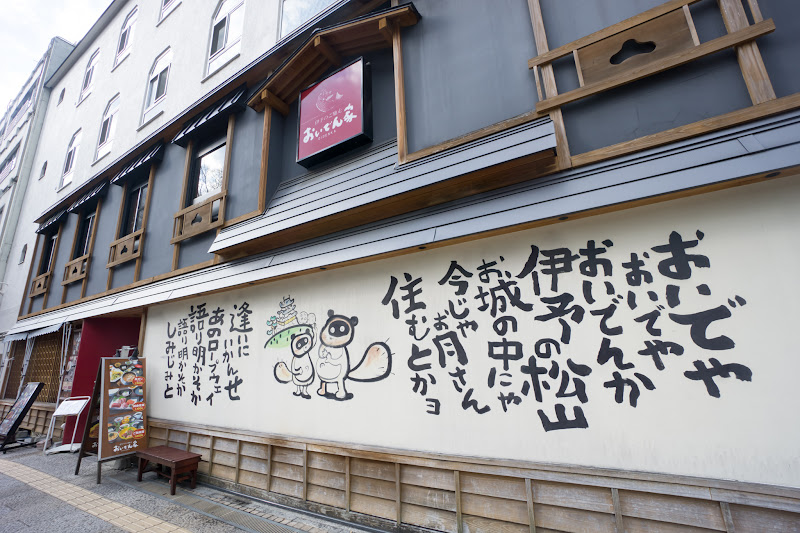 おいでや
おいでや
おいでんか
伊予の松山
お城の中にゃ
今じゃお月さん
住むとかヨ
逢いに
いかんせ
あのロープウェイ
語り明かそか
語り明かそか
しみじみと
おいでん家
おいでん家